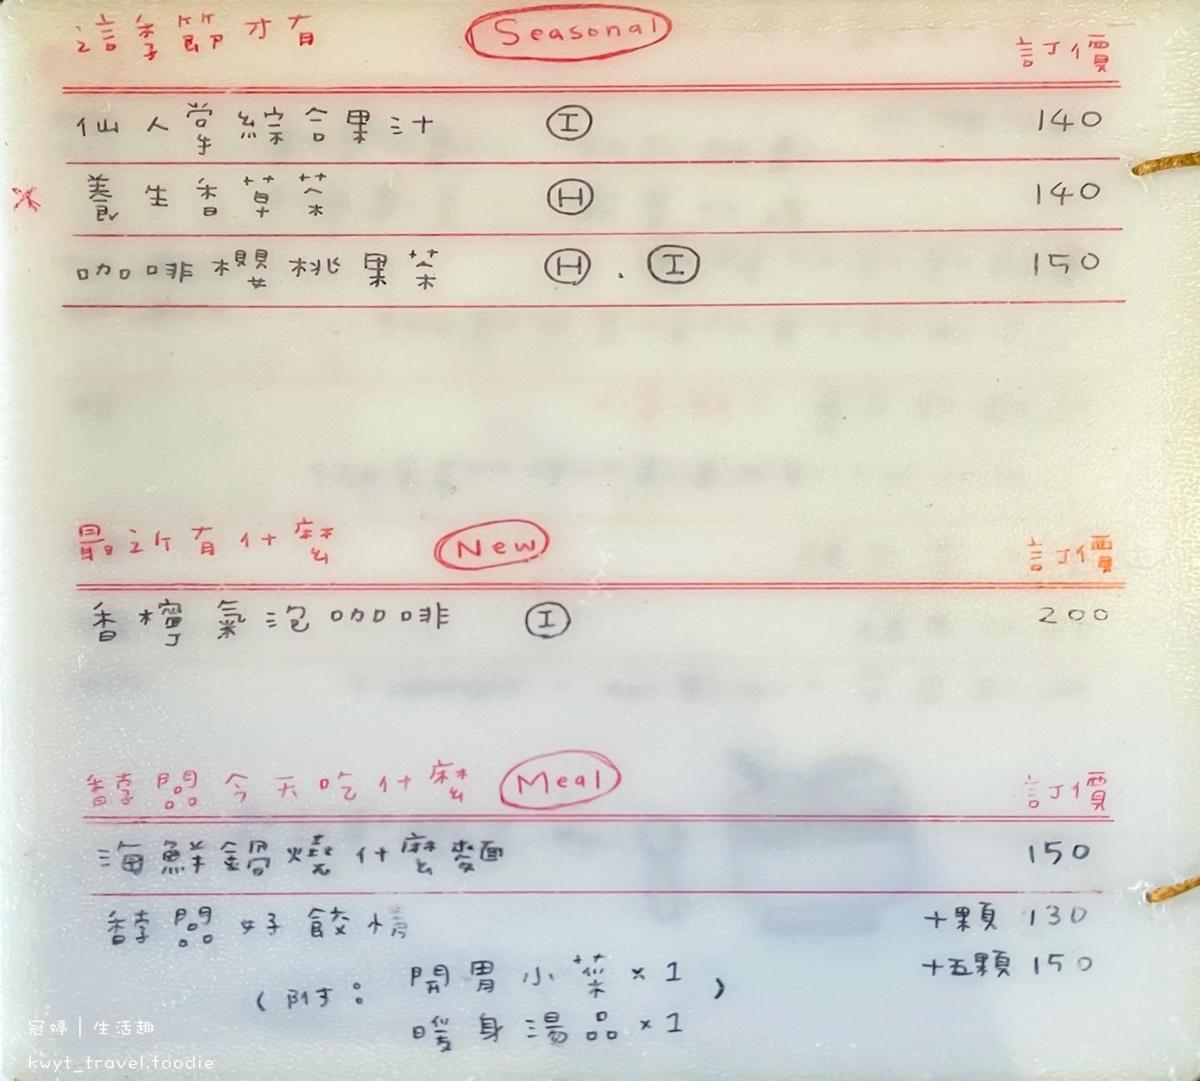 這季節才有 Seasonal 訂價
仙人掌綜合果汁 I 140
x 養生香草茶 H 140
咖啡櫻桃果茶 H . I 150
最近有什麼 New 訂價
香檸氣泡咖啡 I 200
馞品今天吃什麼 Meal 訂價
海鮮鍋燒什麼麵 150
好餃情 十顆 130
十五顆 150
(附: 開胃小菜 x 1 )
暖身湯品 x 1
冠婷 | 生活趣
kwyt_travel.foodie